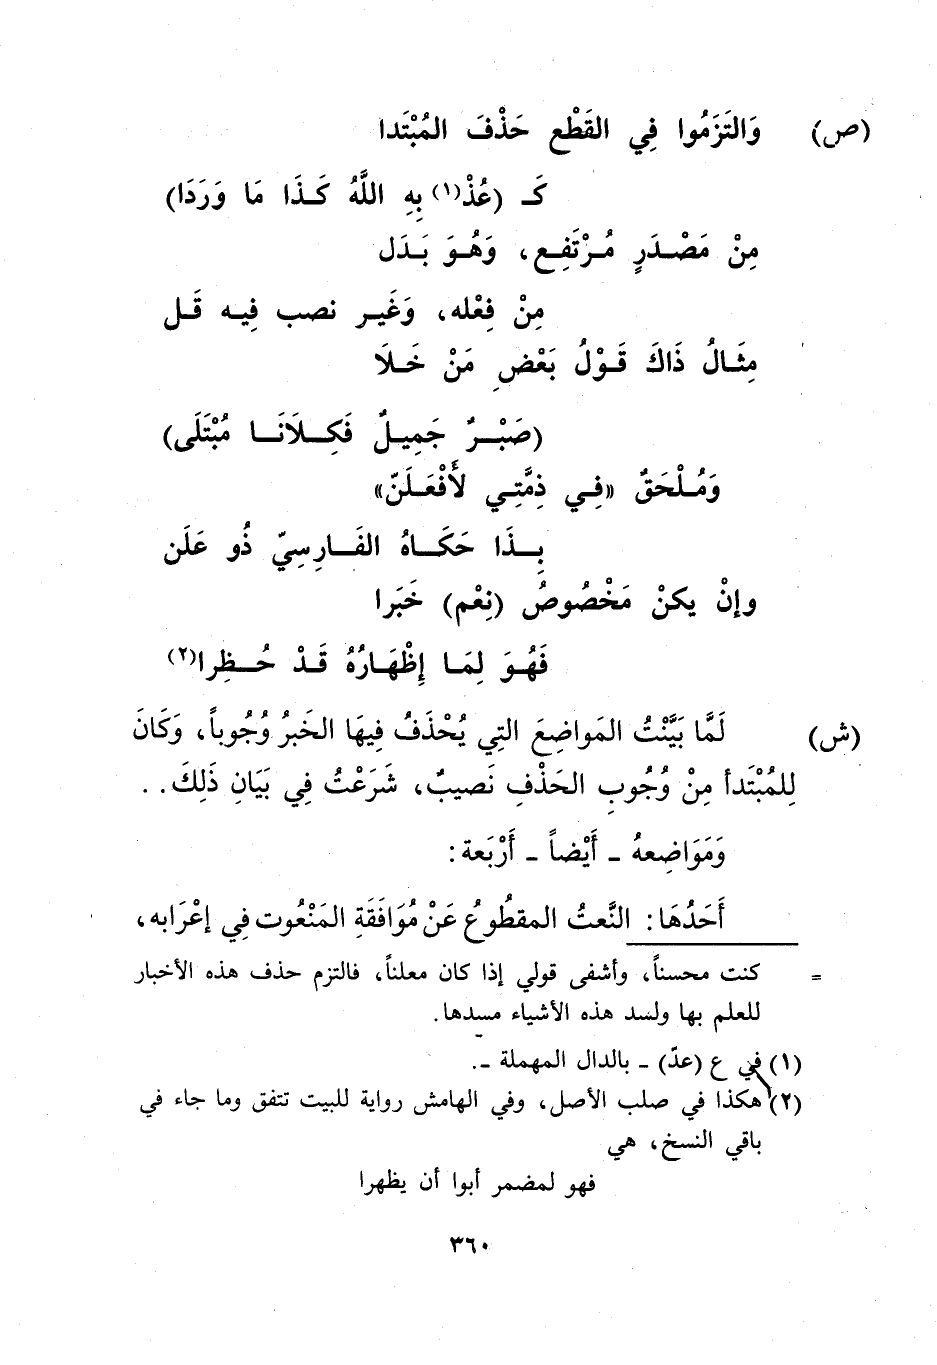 (ص) وَالتَزَمُوا فِي القَطْعِ حَذْفَ المُبْتَدا
كَـ (عُذْ(١) بِهِ اللَّهُ كَـذَا مَا وَرَدَا)
مِنْ مَصْـدَرٍ مُـرْتَفِـعٍ، وَهُـوَ بَـدَل
مِنْ فِعْله، وَغَيـر نصب فِيـه قَـل
مِثَـالُ ذَاكَ قَـوْلُ بَعْضِ مَنْ خَـلَا
(صَبْـرٌ جَمِيـلٌ فَكِـلَانَـا مُبْتَلَى)
وَمُـلْحَقٌ «فِـي ذِمَّتِـي لأَفْعَـلَنّ»
بِـذَا حَكَـاهُ الفَـارِسِيّ ذُو عَلَن
وإنْ يكنْ مَخْصُوصُ (نِعْم) خَبَرا
فَهُـوَ لِمَـا إِظْهَـارُهُ قَـدْ حُـظِرا(٢)
(ش) لَمَّا بَيَّنْتُ المَواضِعَ التِي يُحْذَفُ فِيهَا الخَبرُ وُجُوباً، وَكَانَ
لِلمُبْتَدأ مِنْ وُجُوبِ الحَذْفِ نَصيبٌ، شَرَعْتُ فِي بَيَانِ ذَلِكَ..
وَمَوَاضِعهُ - أَيْضاً - أَرْبَعة:
أَحَدُهَا: النَّعتُ المقطُوعُ عَنْ مُوَافَقَةِ المَنْعُوت فِي إعْرَابه،
= كنت محسناً، وأشفى قولي إذا كان معلناً، فالتزم حذف هذه الأخبار
للعلم بها ولسد هذه الأشياء مسدها.
(١) في ع (عدّ) - بالدال المهملة -.
(٢) هكذا في صلب الأصل، وفي الهامش رواية للبيت تتفق وما جاء في
باقي النسخ، هي
فهو لمضمر أبوا أن يظهرا
٣٦٠